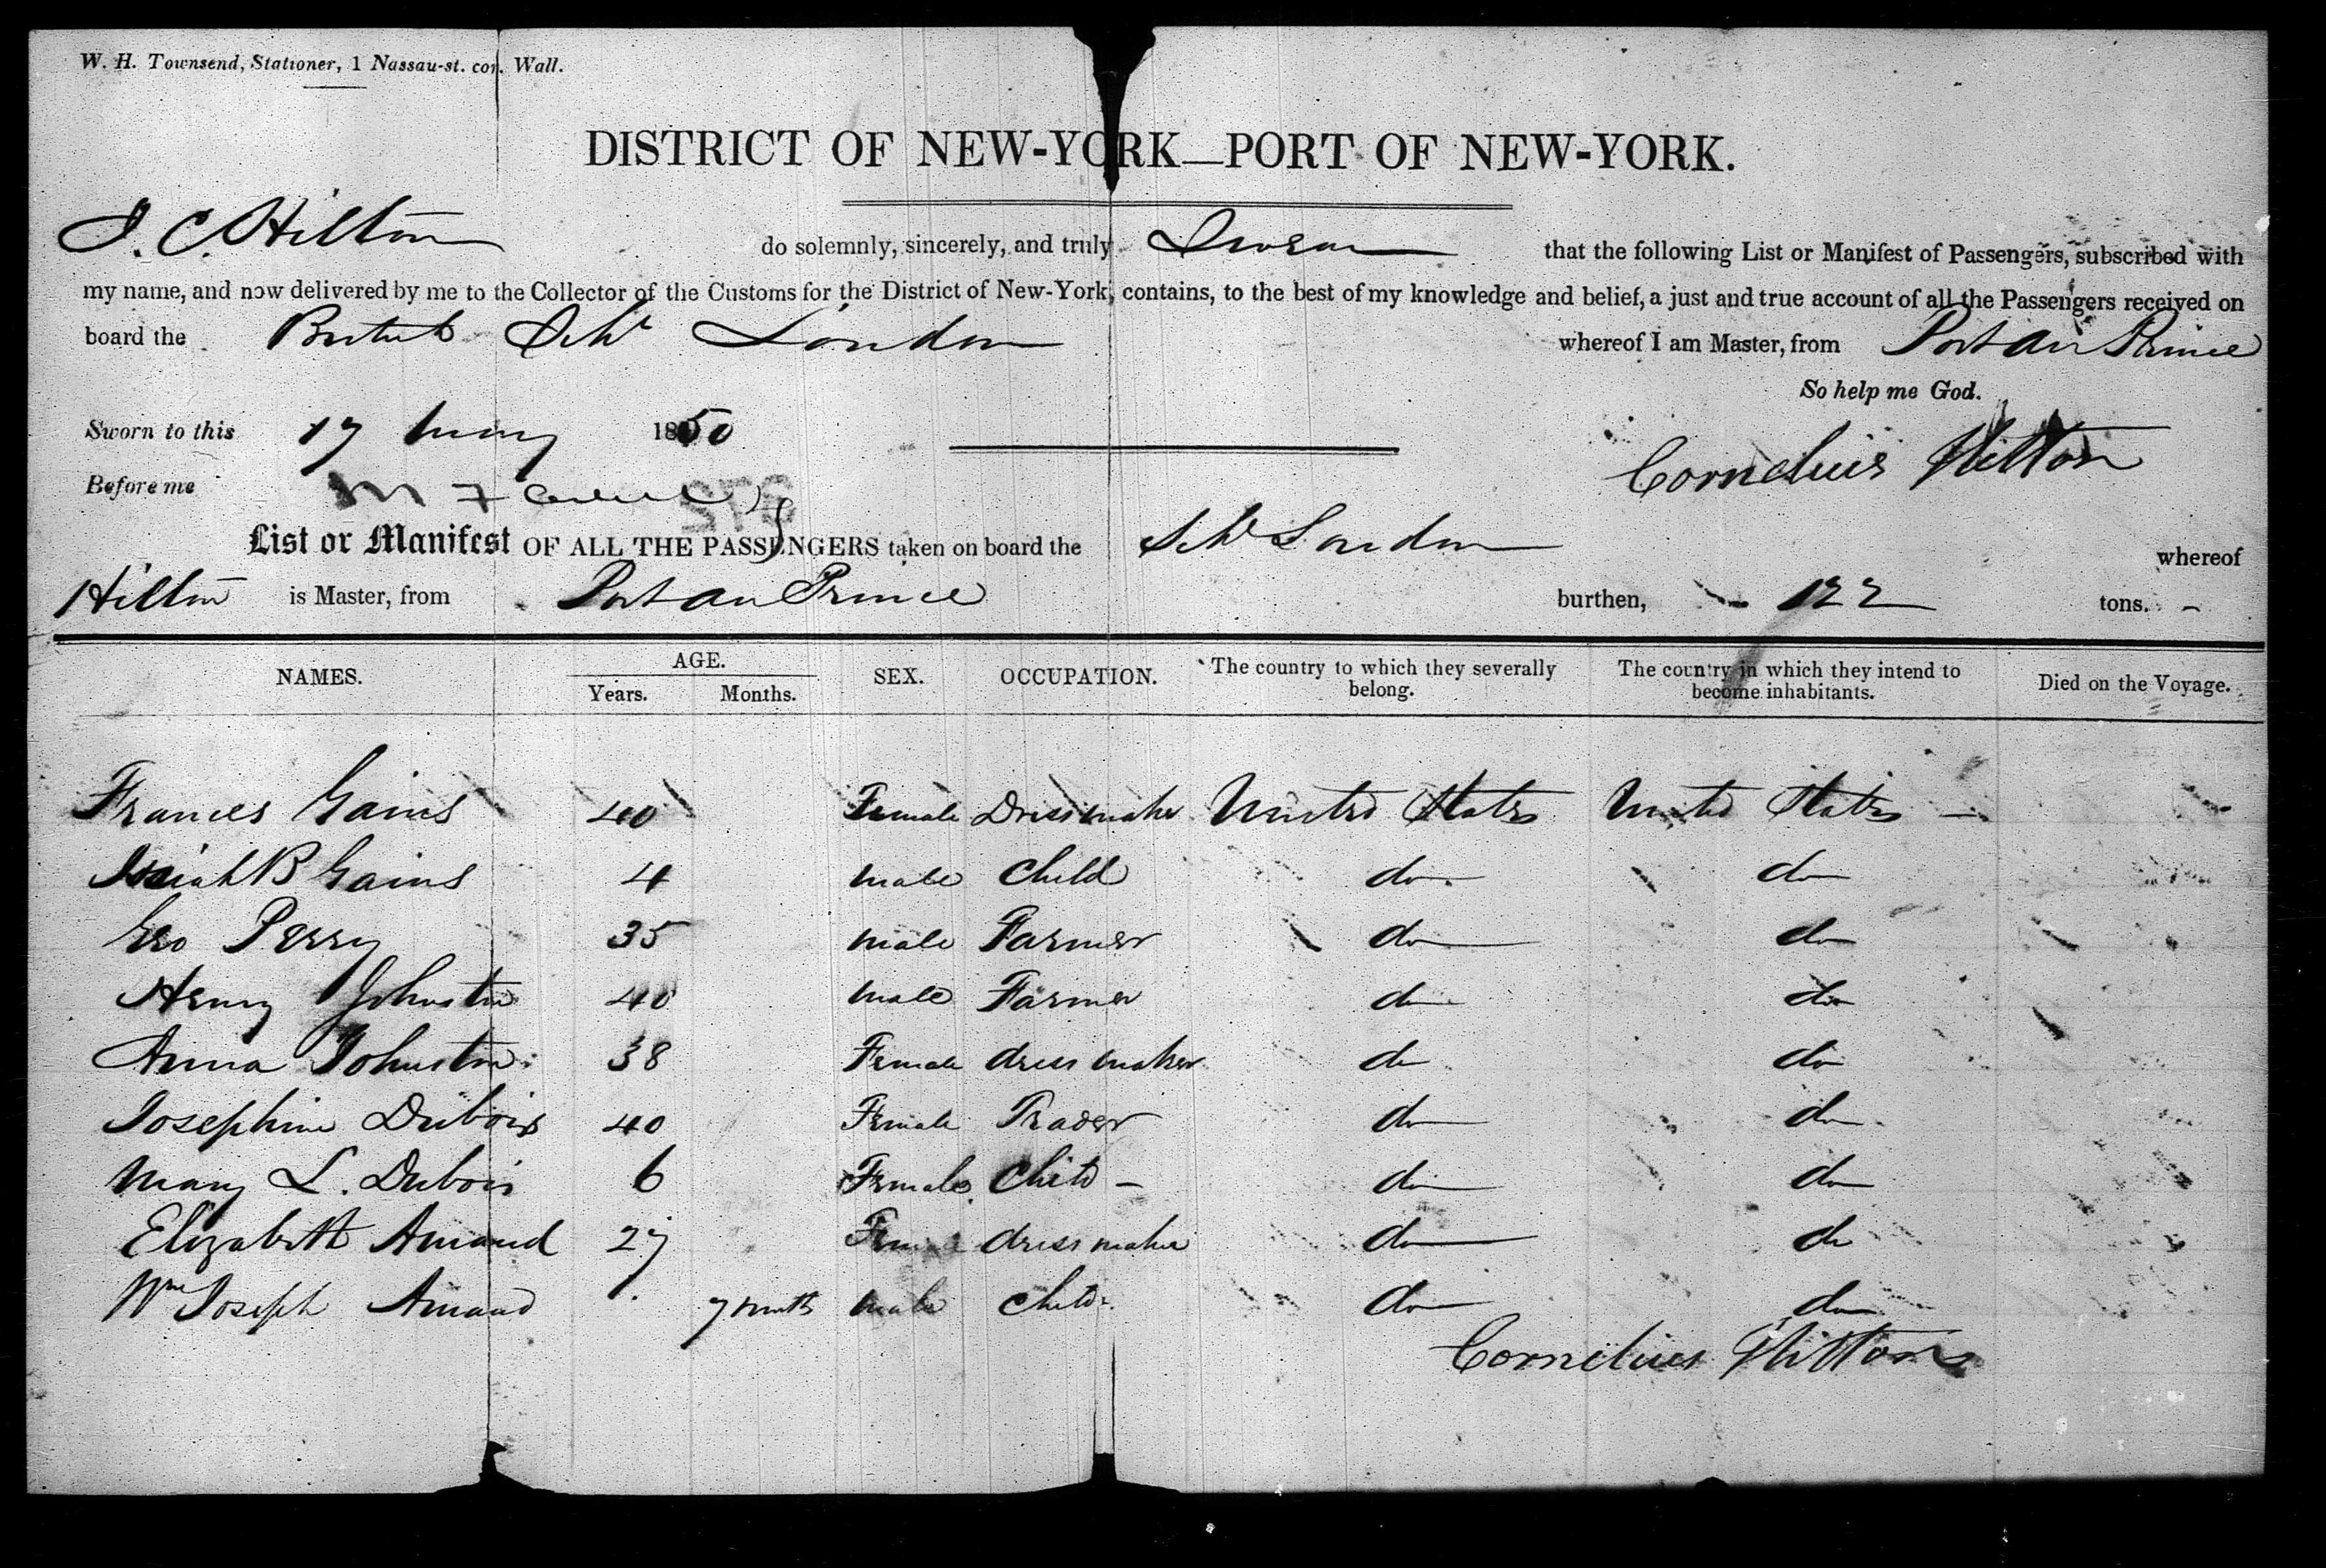 W. H. Townsend, Stationer, 1 Nassau-st. cor. Wall.
DISTRICT OF NEW-YORK—PORT OF NEW-YORK.
I. C. Hilton do solemnly, sincerely, and truly Swear that the following List or Manifest of Passengers, subscribed with
my name, and now delivered by me to the Collector of the Customs for the District of New-York, contains, to the best of my knowledge and belief, a just and true account of all the Passengers received on
board the British Schr London whereof I am Master, from Port au Prince
So help me God.
Sworn to this 17 May 1850
Cornelius Hilton
Before me
List or Manifest OF ALL THE PASSENGERS taken on board the Schr London whereof
Hilton is Master, from Port au Prince burthen, 122 tons.
NAMES. AGE. SEX. OCCUPATION. The country to which they severally belong. The country in which they intend to become inhabitants. Died on the Voyage.
Years. Months.
Frances Gains 40 Female Dressmaker United States United States —
Isaiah B Gains 4 male Child do do
Geo Perry 35 male Farmer do do
Henry Johnston 40 male Farmer do do
Anna Johnston 38 Female dress maker do do
Josephine Dubois 40 Female Trader do do
Mary L. Dubois 6 Female Child — do do
Elizabeth Amaud 27 Female dress maker do do
Wm Joseph Amaud 7 month male Child do do
Cornelius Hilton